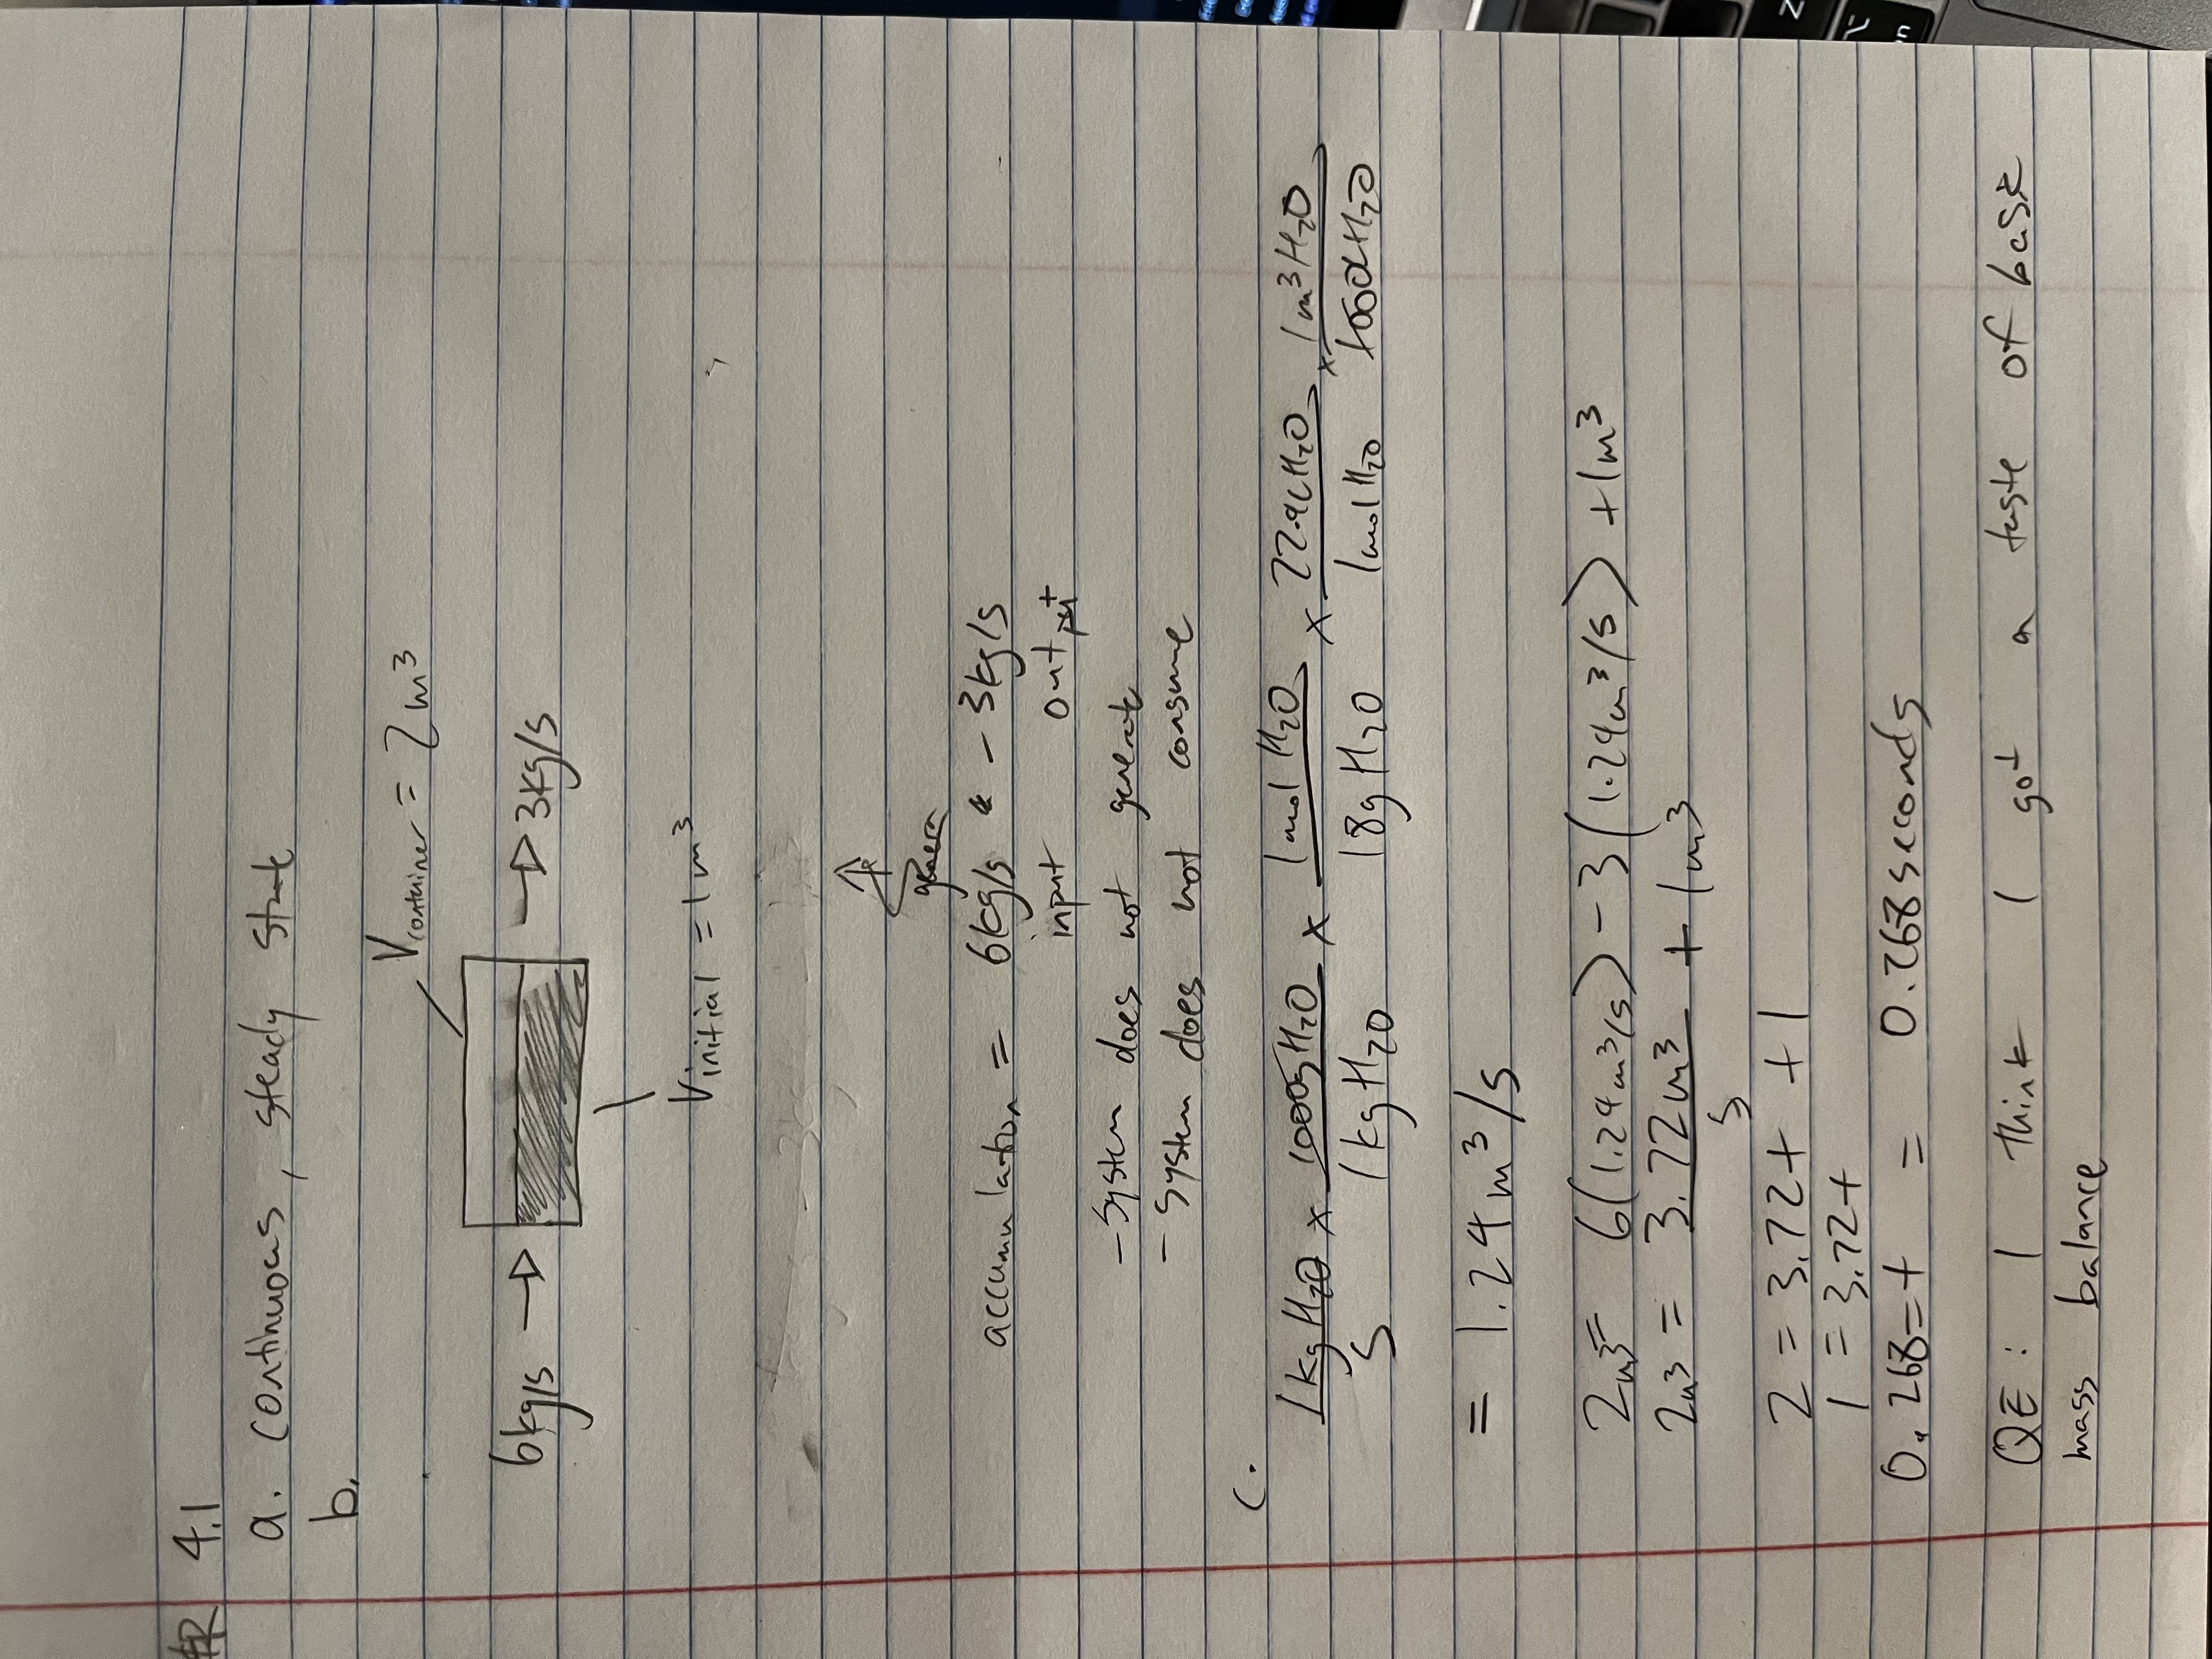 4.1
a. continuous, steady state
b.
Vcontainer = 2m³
6kg/s → → 3kg/s
Vinitial = 1m³
genera
accumulation = 6kg/s - 3kg/s
input output
- System does not generate
- System does not consume
c.
1kg H₂O/s × 1000g H₂O/1kg H₂O × 1mol H₂O/18g H₂O × 22.4L H₂O/1mol H₂O × 1m³ H₂O/1000L H₂O
= 1.24m³/s
2m³ = 6(1.24m³/s) - 3(1.24m³/s) + 1m³
2m³ = 3.72m³/s + 1m³
2 = 3.72t + 1
1 = 3.72t
0.268=t = 0.268 seconds
QE: I think I got a taste of basic
mass balance